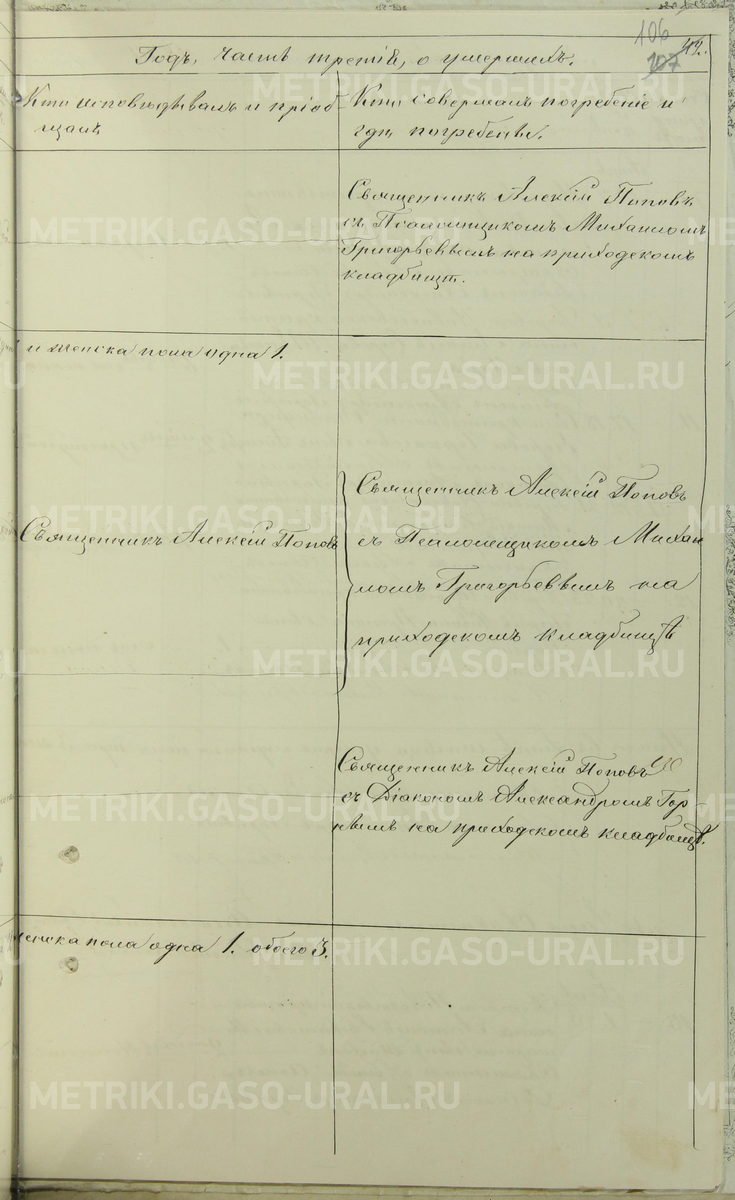 106
107
Годъ, часть третія, о умершихъ.
Кто исповѣдывалъ и пріоб-
щалъ
Кто совершалъ погребеніе и
гдѣ погребены.
Священникъ Алексій Поповъ
съ Псаломщикомъ Михаиломъ
Григорьевымъ на приходскомъ
кладбищѣ.
и женска пола одна 1.
Священникъ Алексій Поповъ
Священникъ Алексій Поповъ
съ Псаломщикомъ Михаи
ломъ Григорьевымъ на
приходскомъ кладбищѣ
Священникъ Алексій Поповъ
съ Діакономъ Александромъ Гор-
нымъ на приходскомъ кладбищѣ.
женска пола одна 1. обоего 3.
METRIKI.GASO-URAL.RU